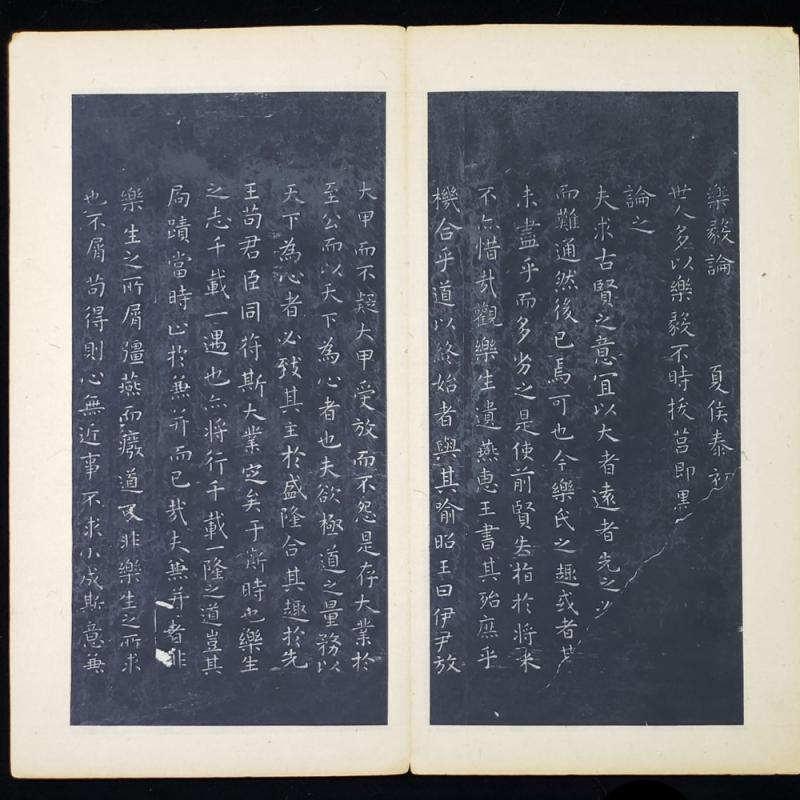 樂毅論 夏侯泰初
世人多以樂毅不時拔莒即墨
論之
夫求古賢之意宜以大者遠者先之必
而難通然後已焉可也今樂氏之趣或者其
未盡乎而多劣之是使前賢失指於將來
不亦惜哉觀樂生遺燕惠王書其殆庶乎
機合乎道以終始者與其喻昭王曰伊尹放
大甲而不疑大甲受放而不怨是存大業於
至公而以天下為心者也夫欲極道之量務以
天下為心者必致其主於盛隆合其趣於先
王苟君臣同符斯大業定矣于斯時也樂生
之志千載一遇也亦將行千載一隆之道豈其
局蹟當時止於兼并而已哉夫兼并者非
樂生之所屑彊燕而癈道又非樂生之所求
也不屑苟得則心無近事不求小成斯意兼